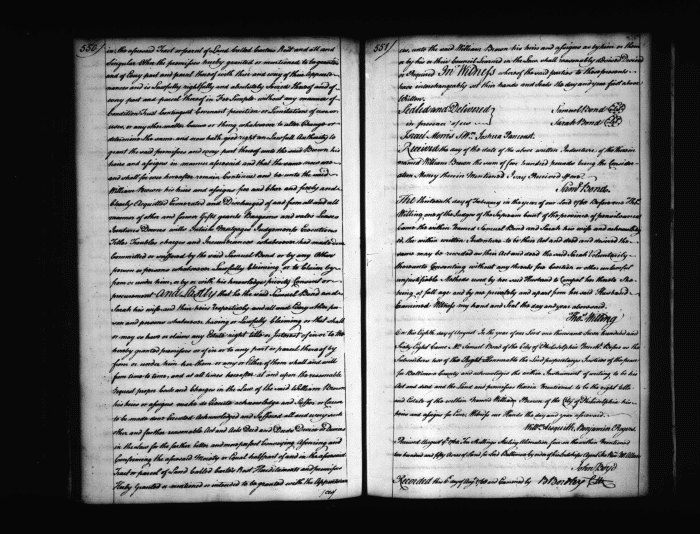 550
in the aforesaid Tract or parcel of Land called Coales Rest and all and
Singular Other the premises hereby granted or mentioned to be granted
and of Every part and parcel thereof with their and every of their Appurte-
nances and is lawfully rightfully and absolutely Seized thereof and of
every part and parcel thereof in Fee Simple without any manner of
Condition Trust Contingent Covenant proviso or Limitations of
uses or any other matter Cause or Thing whatsoever to alter Change or
determine the same and hath good right and Lawfull Authority to
grant the said premises and every part thereof unto the said Brown his
heirs and assigns in manner aforesaid and that the same now are
and shall for ever hereafter remain Continue and be unto the said
William Brown his heirs and assigns free and Clear and freely and
Clearly Acquitted Exonerated and Discharged of and from all and all
manner of other and former Gifts grants Bargains and Sales Leases
Jointures Dowers Mortgages Judgments Executions
Titles Troubles charges and Incumbrances whatsoever had made
Committed or suffered by the said Samuel Bond or by any Other
person or persons whatsoever Lawfully Claiming or to Claim by
from or under him or by or with his knowledge privity Consent or
procurement And Lastly that he the said Samuel Bond and
Sarah his wife and their heirs Respectively and all and Every Other per-
son and persons whatsoever having or Lawfully Claiming or that shall
or may have or claim any Estate right title or Interest of in or to the
hereby granted premises or of in or to any part or parcel thereof by
from or under him her them or any or Either of them shall and will
from time to time and at all times hereafter at and upon the reasonable
request proper Costs and Charges in the Law of the said William Brown
his heirs or assigns make do Execute acknowledge and Suffer or Cause
to be made done Executed Acknowledged and Suffered all and every such
other and further reasonable Act and Acts Deed and Deeds Device & Devices
in the Law for the further better and more perfect Conveying Assuring and
Confirming the aforesaid Moiety or Equal half part of and in the aforesaid
Tract or parcel of Land called Coales Rest Hereditaments and premises
Hereby Granted or mentioned or intended to be granted with the Appurtenan
551
ces, unto the said William Brown his heirs and assigns as by him or them
or by his or their Council Learned in the Law shall reasonably Devised Advised
or Required In Witness whereof the said parties to these presents
have interchangeably set their hands and Seals the day and year first above
Written.
Sealed and Delivered
in presence of us
Samuel Bond
Sarah Bond
Israel Morris Jn. Joshua
Received the day of the date of the above written Indenture, of the therein
named William Brown the sum of five hundred pounds being the Considera-
tion Money therein Mentioned I say Received by me
Saml. Bond
The thirteenth day of February in the year of our Lord 1768 Before me Tho.
Willing, one of the Judges of the Supream Court of the province of pensilvania
Came the within Named Samuel Bond and Sarah his wife and acknowledg-
ed, the within written Indenture to be their Act and deed and desired the
same may be recorded as their Act and deed the said Sarah Voluntarily
thereunto Consenting without any threats fear Coertion or other unlawful
unjustifiable Methods used by her said Husband to Compel her thereto She
being of full age and by me privately and apart from her said Husband
Examined Witness my hand and Seal the day and year abovesaid
Tho. Willing
On the Eighth day of August In the year of our Lord one thousand seven hundred and
Sixty Eight Came Mr. Samuel Bond of the City of Philadelphia Mercht. Before us the
Subscribers two of the Right Honourable the Lord proprietarys Justices of the peace
for Baltimore County and acknowledges the within Instrument of writing to be his
Act and deed and the Land and premises therein Mentioned to be the right title
and Estate of the within Named William Brown of the City of Philadelphia his
heirs and assigns for Ever. Witness our Hands the day and year aforesaid
Wm. Asquith, Benjamin Rogers
Received August 9th 1768 Ten Shillings Sterling Alienation fine on the within Mentioned
two hundred and fifty Acres of Land for Lord Baltimore by order of his Lordships Agent
John Boyd
Recorded this day of Augt 1768 and Examined by B Bordley Clk